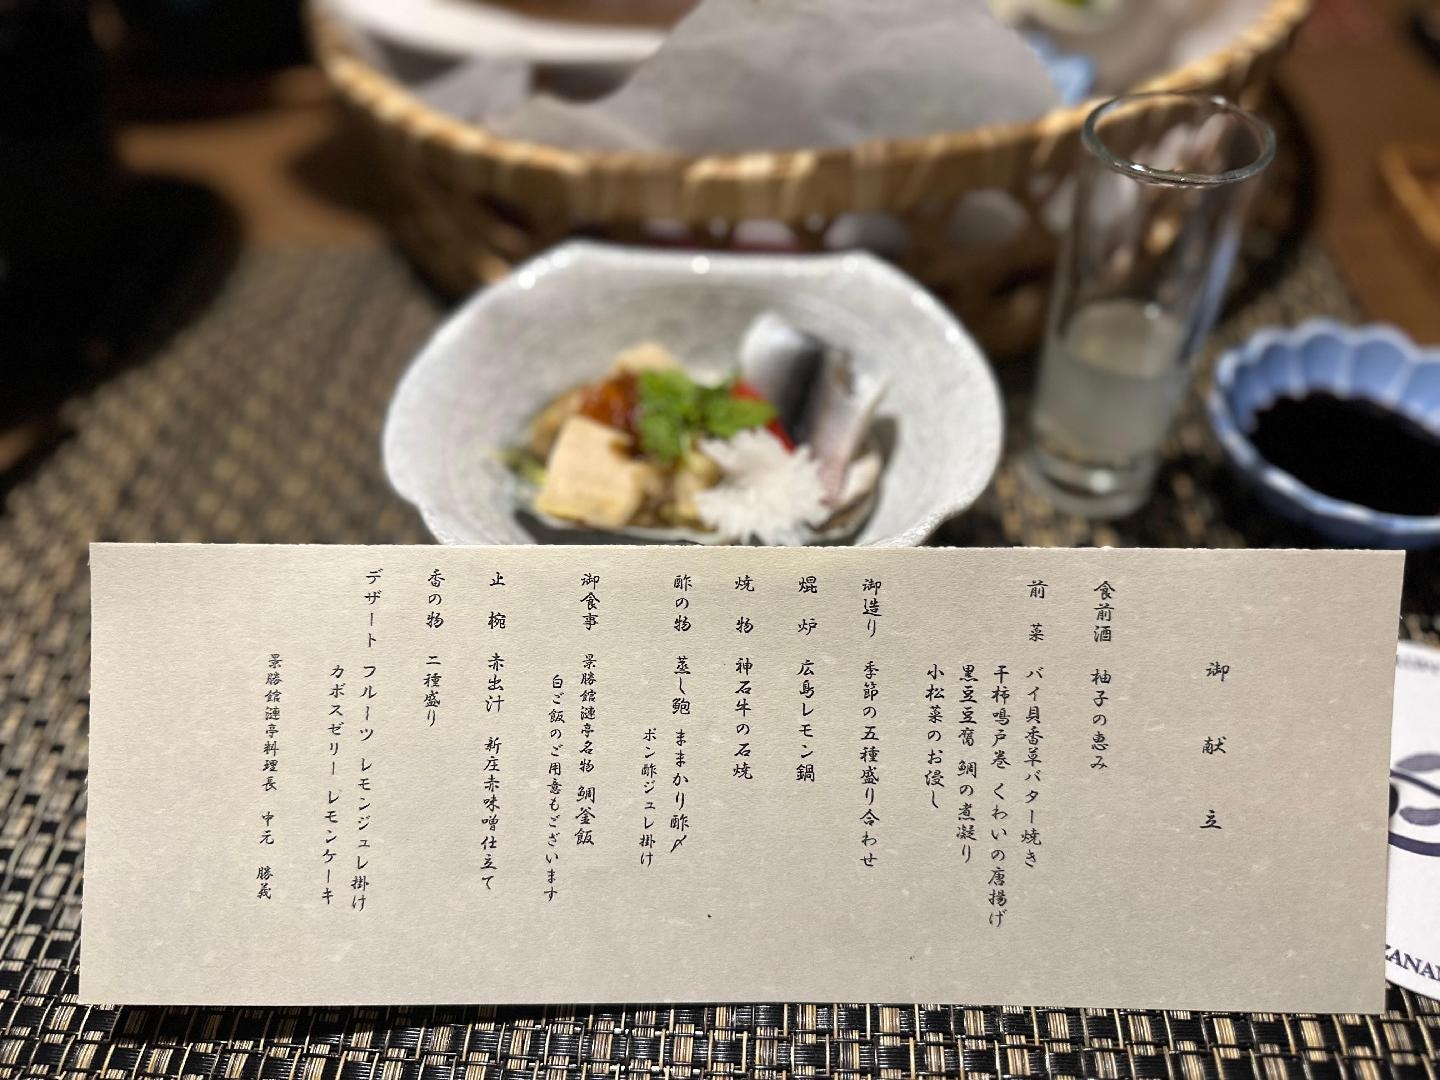 御献立
食前酒 柚子の恵み
前菜 バイ貝香草バター焼き
干柿鳴戸巻 くわいの唐揚げ
黒豆豆腐 鯛の煮凝り
小松菜のお浸し
御造り 季節の五種盛り合わせ
焜炉 広島レモン鍋
焼物 神石牛の石焼
酢の物 蒸し鮑 ままかり酢〆
ポン酢ジュレ掛け
御食事 景勝館漣亭名物 鯛釜飯
白ご飯のご用意もございます
止椀 赤出汁 新庄赤味噌仕立て
香の物 二種盛り
デザート フルーツ レモンジュレ掛け
カボスゼリー レモンケーキ
景勝館漣亭料理長 中元 勝義